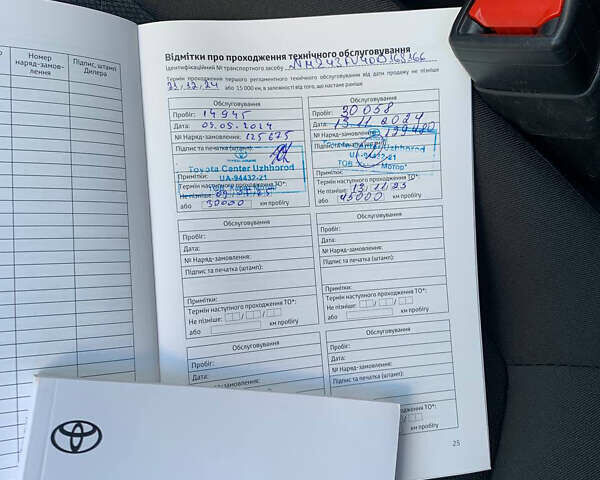 Номер
наряд-замов-
лення
Підпис, штамп
Дилера
Відмітки про проходження технічного обслуговування
Ідентифікаційний № транспортного засобу
Термін проходження першого регламентного технічного обслуговування від дати продажу не пізніше
21.12.24 або 15 000 км, в залежності від того, що настане раніше
Обслуговування
Пробіг: 14945
Дата: 09.05.2024
№ Наряд-замовлення: 125675
Підпис та печатка (штамп):
Toyota Center Uzhhorod
UA-94432-21
Примітки:
Термін наступного проходження ТО*:
Не пізніше:
або 30000 км пробігу
Обслуговування
Пробіг: 30058
Дата: 13.11.2024
№ Наряд-замовлення: 199480
Підпис та печатка
Toyota Center Uzhhorod
UA-94432-21
ТОВ Мотор"
Примітки:
Термін наступного проходження ТО*:
Не пізніше: 13.11.25
або 45000 км пробігу
Обслуговування
Пробіг:
Дата:
№ Наряд-замовлення:
Підпис та печатка (штамп):
Примітки:
Термін наступного проходження ТО*:
Не пізніше:
або км пробігу
Обслуговування
Пробіг:
Дата:
№ Наряд-замовлення:
Підпис та печатка (штамп):
Примітки:
Термін наступного проходження ТО*:
Не пізніше:
або км пробігу
Обслуговування
Пробіг:
Дата:
№ Наряд-замовлення:
Обслуговування
Пробіг:
Дата:
№ Наряд-замовлення:
Підпис та печатка (штамп):
ТО*:
км пробігу
25